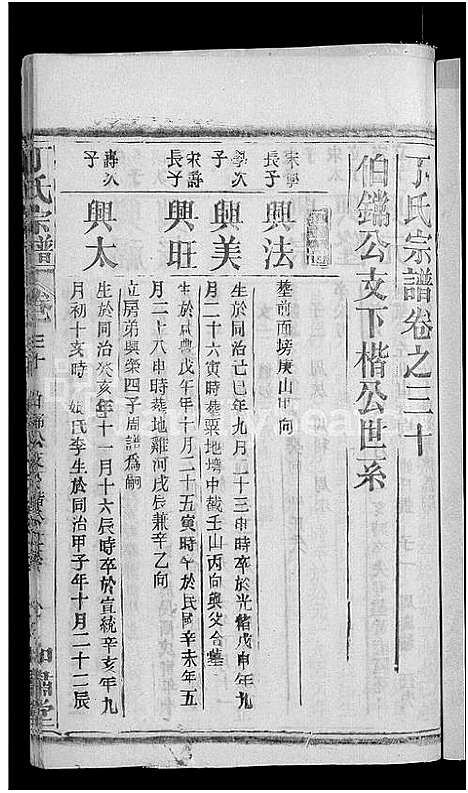 丁氏宗譜卷之三十
伯鏳公支下楷公世系
宋寧長子
興法
墓前面塝庚山甲向
學次子
興美
生於同治己巳年九月二十三申時卒於光緒戊申年九
月二十六寅時墓粟地壪中截壬山丙向與父合墓
宋壽長子
興旺
生於咸豐戊午年十月二十五寅時卒於民國辛未年五
月二十八申時墓地雞河戌辰兼辛乙向
立房弟興榮四子周譜爲嗣
壽次子
興太
生於同治癸亥年十一月十六辰時卒於宣統辛亥年九
月初十亥時 娘氏李生於同治甲子年十月二十二辰
丁氏宗譜